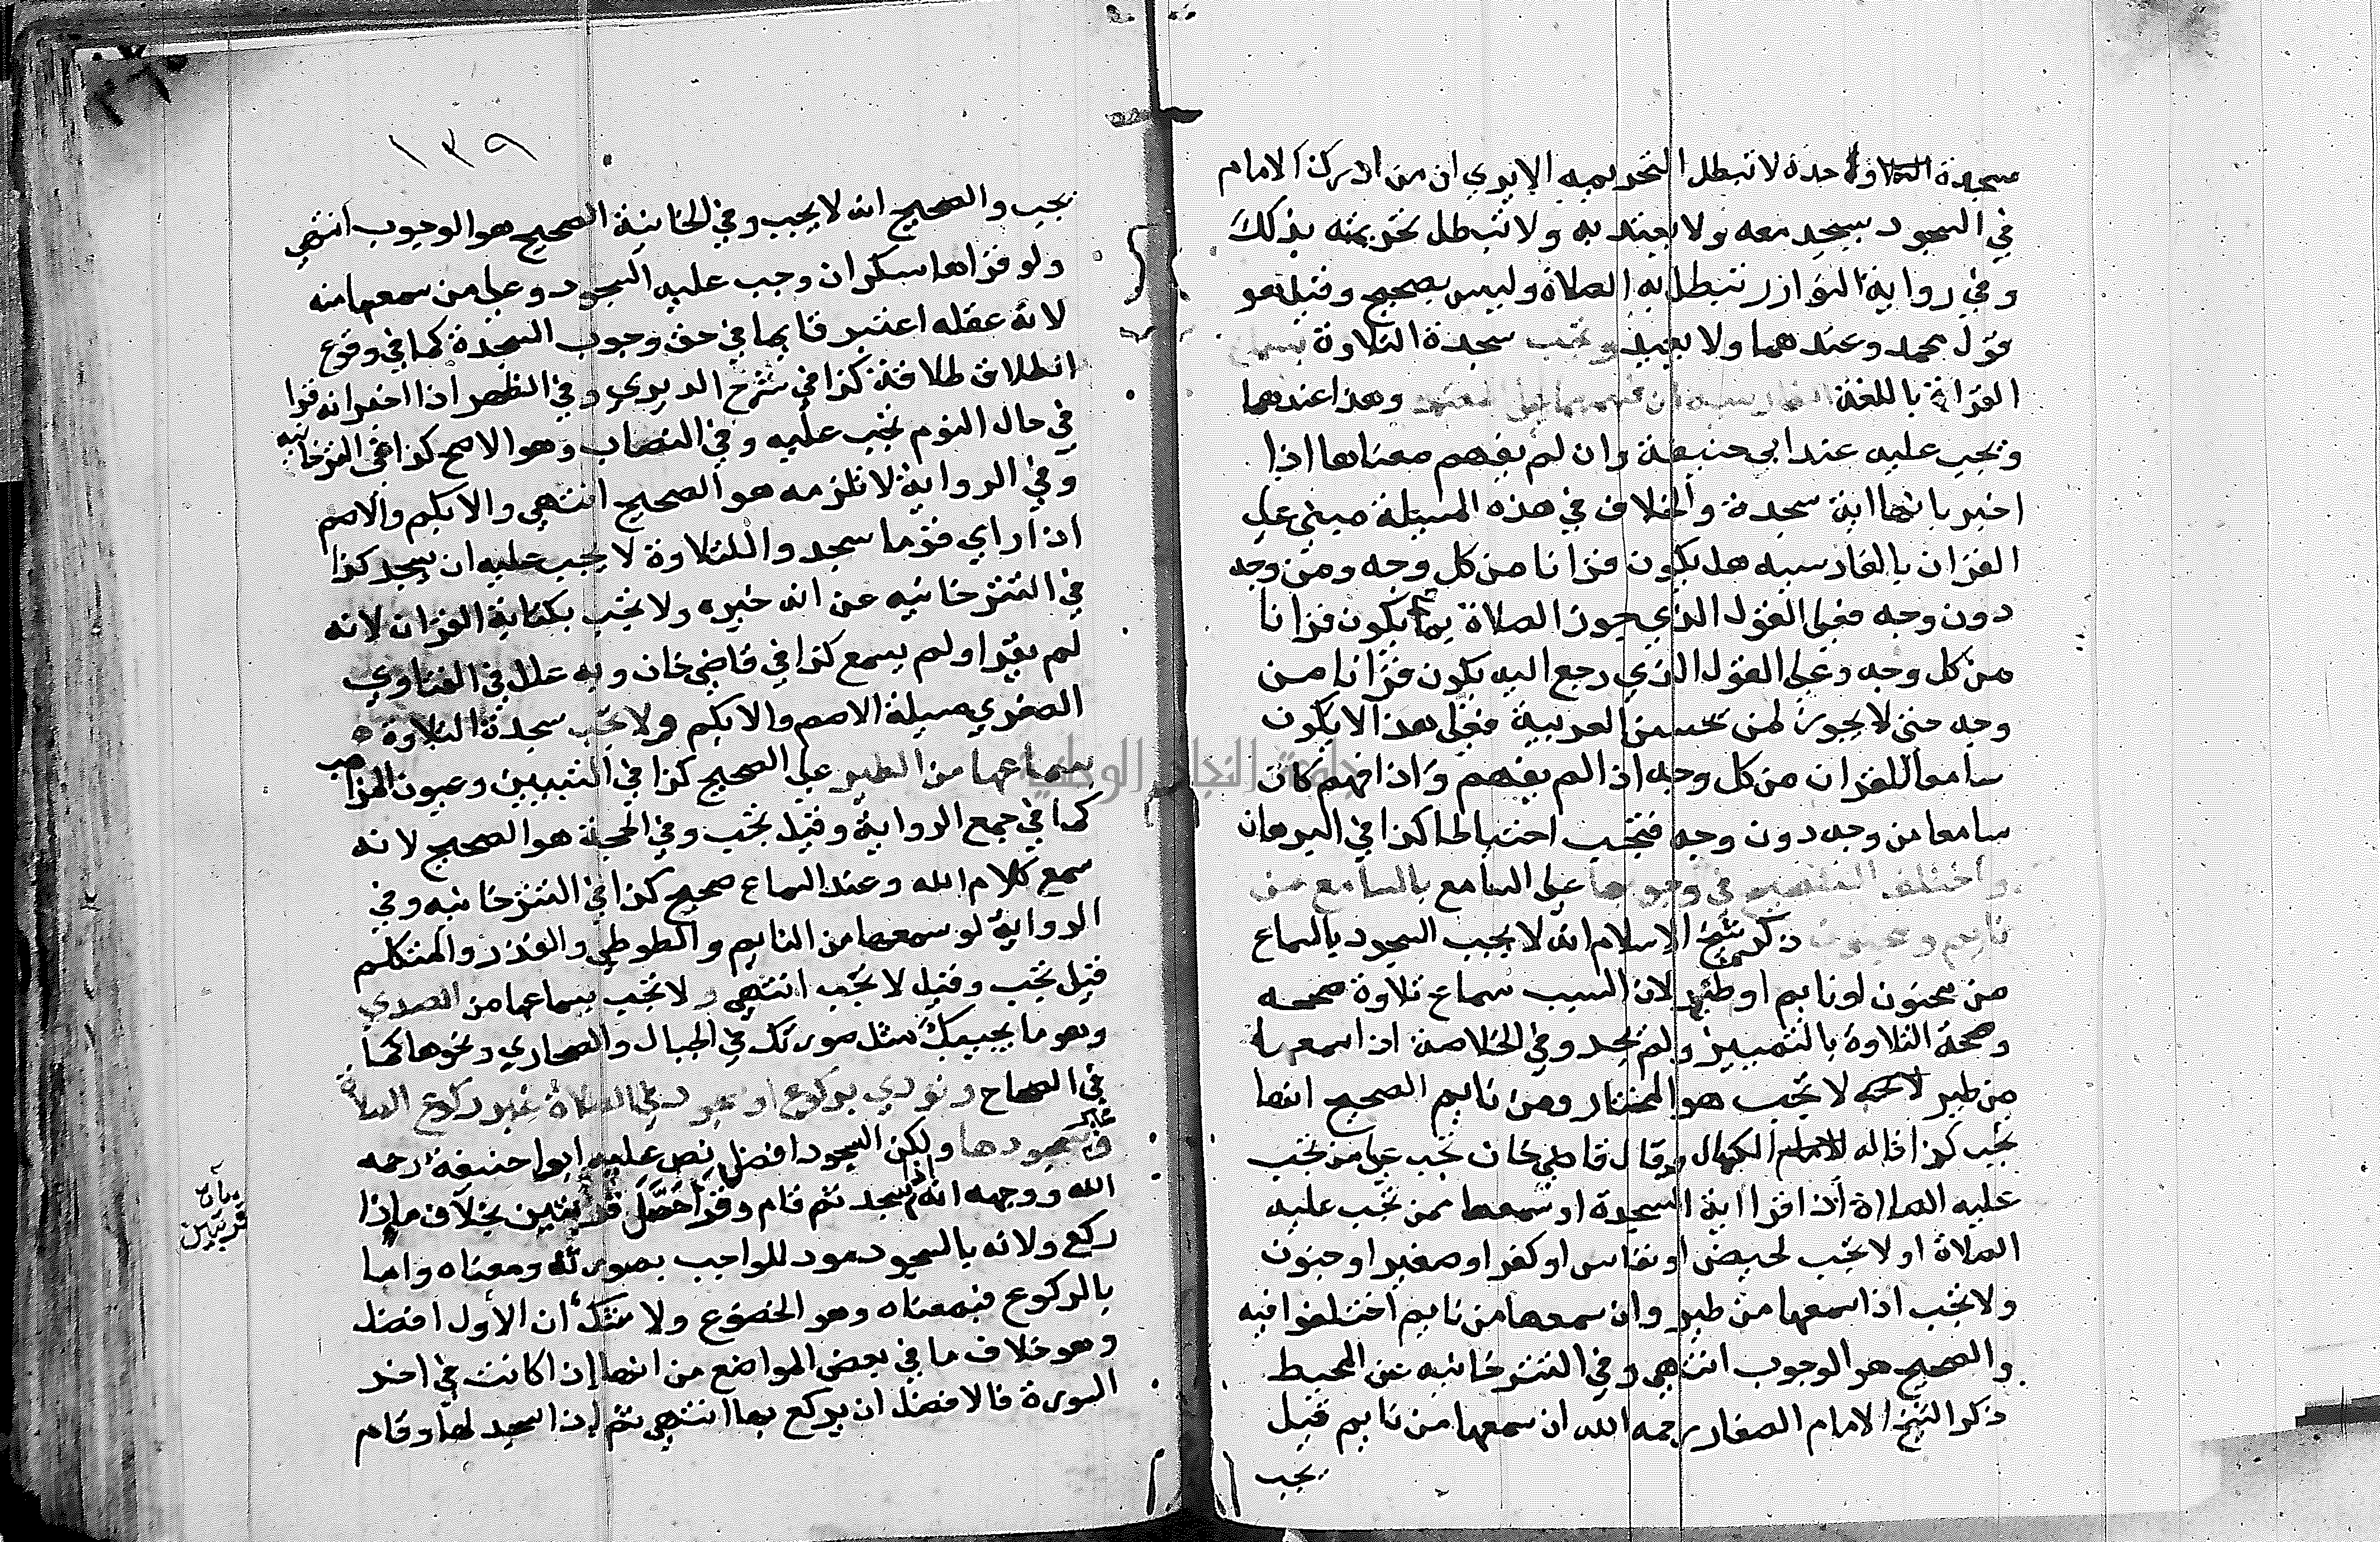 سجدة واحدة لا تبطل التحريمه الا يري ان من ادرك الامام
في السجود يسجد معه ولا يعتد به ولا تبطل تحريمته بذلك
وفي رواية النوادر تبطل به الصلاة وليس بصحيح وقيل هو
قول محمد وعندهما ولا يعيد وتجب سجدة التلاوة بسماع
القراة باللغة الفارسيه ان فهمها علي المعتمد وهذا عندهما
وتجب عليه عند ابي حنيفة وان لم يفهم معناها اذا
اخبر بانها اية سجدة والخلاف في هذه المسيلة مبني علي
القران بالفارسيه هل يكون قرانا من كل وجه ومن وجه
دون وجه فعلي القول الذي يجوز الصلاة بها يكون قرانا
من كل وجه وعلي القول الذي رجع اليه يكون قرانا من
وجه حتي لا يجوز لمن يحسن العربية فعلي هذا لا يكون
سامعا للقران من كل وجه اذا لم يفهم واذا فهم كان
سامعا من وجه دون وجه فتجب احتياطا كذا في البرهان
واختلف التصحيح في وجوبها علي السامع بالسامع من
نايم ومجنون ذكر شيخ الاسلام انه لا يجب السجود بالسماع
من مجنون او نايم او طير لان السبب سماع تلاوة صحيحه
وصحة التلاوة بالتمييز ولم يجد وفي الخلاصة اذا سمعها
من طير لا تجب هو المختار ومن نايم الصحيح انها
تجب كذا قاله الكمال وقال قاضي خان تجب علي من تجب
عليه الصلاة اذا قرا اية السجدة او سمعها ممن تجب عليه
الصلاة او لا تجب لحيض او نفاس او كفر او صغير او جنون
ولا تجب اذا سمعها من طير وان سمعها من نايم اختلفوا فيه
والصحيح هو الوجوب انتهي وفي التترخانيه عن المحيط
ذكر الشيخ الامام الصفار رحمه الله ان سمعها من نايم قيل
يجب
١٣٩
يجب والصحيح انه لا يجب وفي الخانية الصحيح هو الوجوب انتهي
ولو قراها سكران وجب عليه السجود وعلي من سمعها منه
لانه عقله اعتبر قايما في حق وجوب السجدة كما في وقوع
الطلاق طلاقه كذا في شرح الديري وفي الظهر اذا اخبر انه قرا
في حال النوم تجب عليه وفي النصاب وهو الاصح كذا في التترخانيه
وفي الرواية لا تلزمه هو الصحيح انتهي والابكم والاصم
اذا راي قوما سجدوا للتلاوة لا يجب عليه ان يسجد كذا
في التترخانيه عن انه خيره ولا تجب بكتابة القران لانه
لم يقرا ولم يسمع كذا في قاضي خان وبه علل في الفتاوي
الصغري مسيلة الاصم والابكم ولا تجب سجدة التلاوة
بسماعها من الطير علي الصحيح كذا في التبيين وعيون المذاهب
كما في جمع الرواية وقيل تجب وفي الحجة هو الصحيح لانه
سمع كلام الله وعند السماع صحيح كذا في التترخانيه وفي
الرواية لو سمعها من النايم والطوطي والقرد والمتكلم
قيل تجب وقيل لا تجب انتهي ولا تجب بسماعها من الصدي
وهو ما يجيبك مثل صوتك في الجبال والصحاري ونحوها كما
في الصحاح وتؤدي بركوع او سجود في الصلاة غير ركوع الصلاة
وسجودها ولكن السجود افضل نص عليه ابوا حنيفة رحمه
الله ووجهه انه اذا سجد ثم قام وقرا حصل قربتين بخلاف ما اذا
ركع ولانه بالسجود مود للواجب بصورته ومعناه واما
بالركوع فبمعناه وهو الخضوع ولا شك ان الاول افضل
وهو خلاف ما في بعض المواضع من انها اذا كانت في اخر
السورة فالافضل ان يركع بها انتهي ثم اذا سجد لها وقام
بيان
قربتين
جامعة النجاح الوطنية